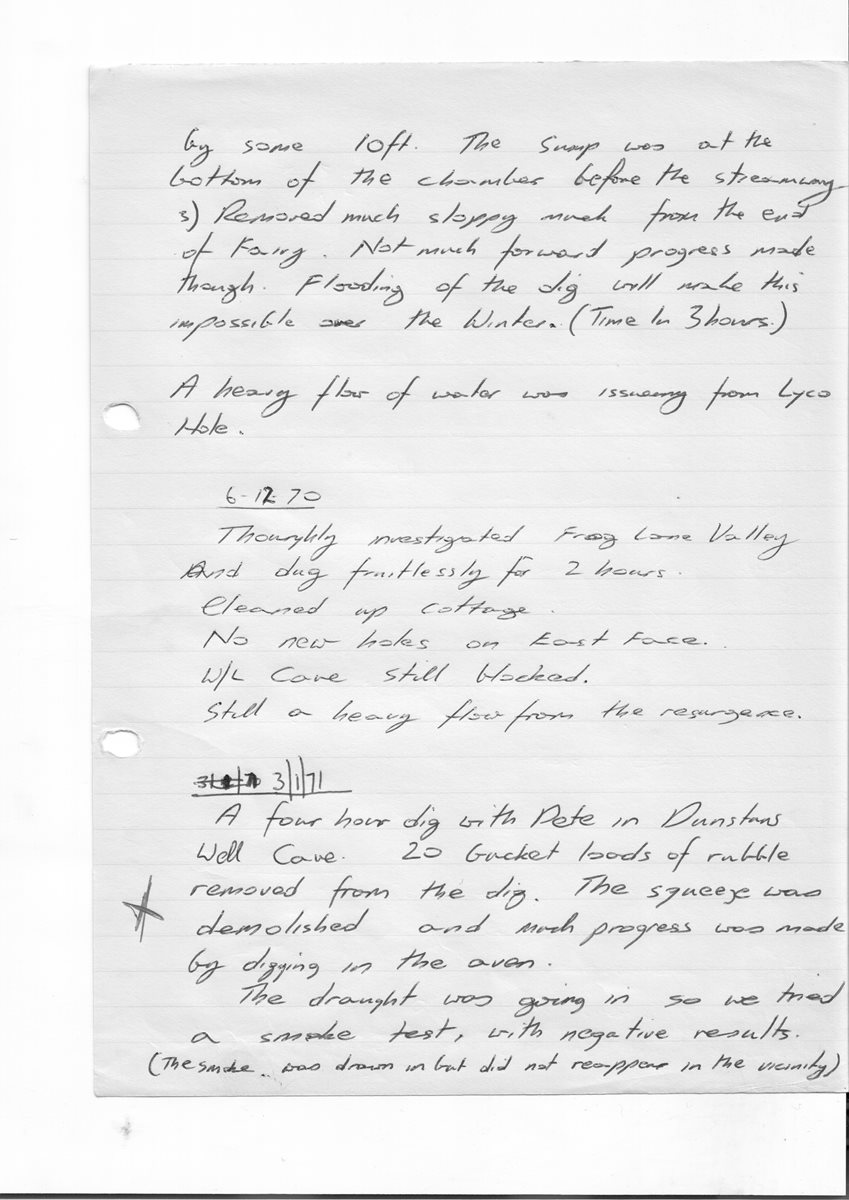 by some 10ft. The Sump was at the
bottom of the chamber before the streamway
3) Removed much sloppy much from the end
of Fairy. Not much forward progress made
though. Flooding of the dig will make this
impossible over the Winter. (Time In 3 hours.)
A heavy flow of water was issueing from Lyco
Hole.
6-12-70
Thouryhly investigated Frog Lane Valley
And dug fruitlessly for 2 hours.
Cleaned up cottage.
No new holes on East Face.
W/L Cave still blocked.
Still a heavy flow from the resurgence.
3/1/71
A four hour dig with Pete in Dunstans
Well Cave. 20 bucket loads of rubble
removed from the dig. The squeeze was
demolished and much progress was made
by digging in the aven.
The draught was going in so we tried
a smoke test, with negative results.
(The smoke was drawn in but did not reappear in the vicinity)